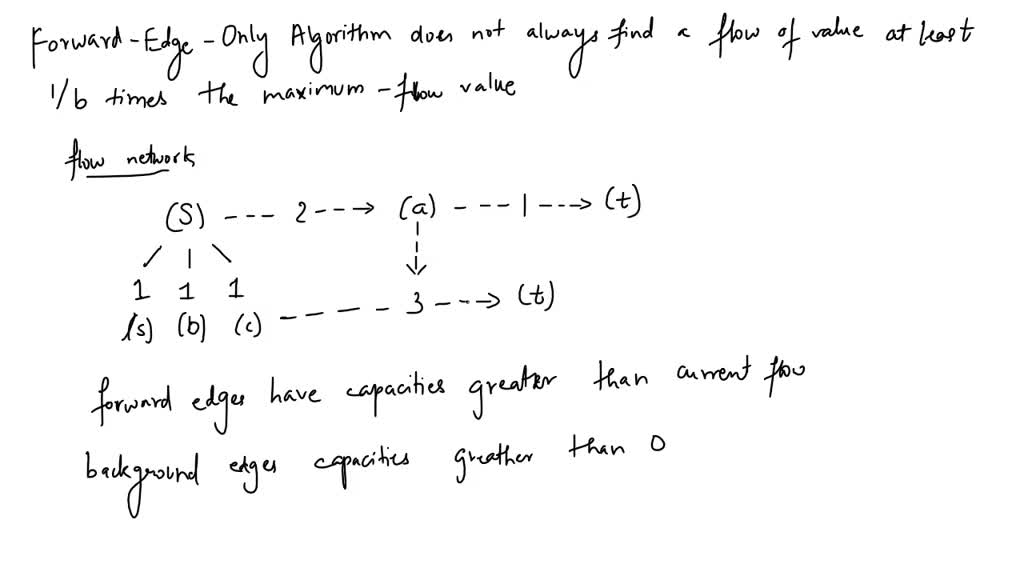 Forward-Edge-Only Algorithm does not always find a flow of value at least
1/b times the maximum-flow value
flow network
(S) --- 2 ---> (a) --- 1 ---> (t)
1 1 1
(s) (b) (c) ---- 3 ---> (t)
forward edges have capacities greater than current flow
background edges capacities greather than 0